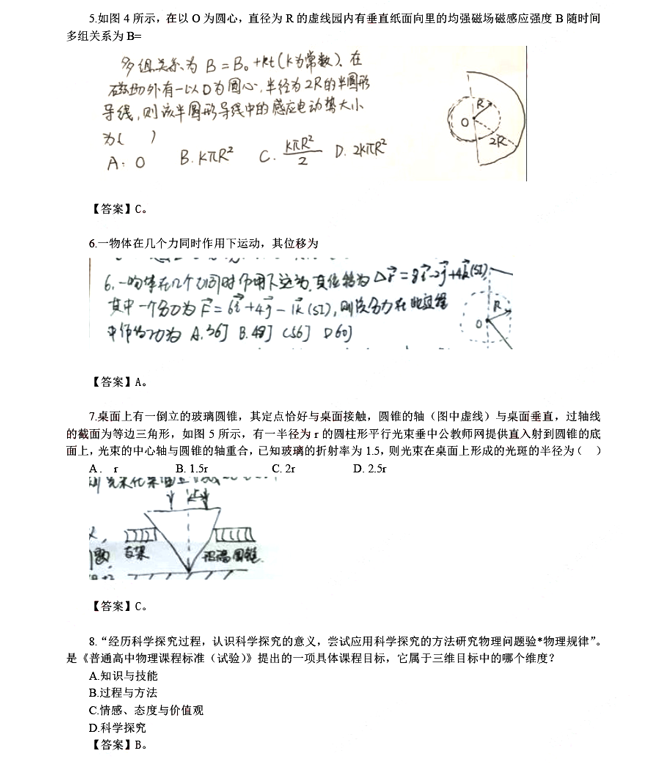 5.如图 4 所示，在以 O 为圆心，直径为 R 的虚线园内有垂直纸面向里的均强磁场磁感应强度 B 随时间
多组关系为 B=
多组关系为 B=B₀+kt(k为常数)、在
磁场外有一以O为圆心,半径为2R的半圆形
导线,则该半圆形导线中的感应电动势大小
为( )
A. 0 B. KπR² C. KπR²/2 D. 2KπR²
R
O
2R
【答案】C。
6.一物体在几个力同时作用下运动，其位移为
6.一物体在几个力同时作用下运动,其位移为 Δr⃗=8i⃗-2j⃗+4k⃗(SI)
其中一个分力为 F⃗=6i⃗+4j⃗-1k⃗(SI),则该分力在此过程
中作的功为 A.36J B.48J C56J D60J
R
O
【答案】A。
7.桌面上有一倒立的玻璃圆锥，其定点恰好与桌面接触，圆锥的轴（图中虚线）与桌面垂直，过轴线
的截面为等边三角形，如图 5 所示，有一半径为 r 的圆柱形平行光束垂中公教师网提供直入射到圆锥的底
面上，光束的中心轴与圆锥的轴重合，已知玻璃的折射率为 1.5，则光束在桌面上形成的光斑的半径为（ ）
A． r B. 1.5r C. 2r D. 2.5r
支架 玻璃圆锥
【答案】C。
8.“经历科学探究过程，认识科学探究的意义，尝试应用科学探究的方法研究物理问题验*物理规律”。
是《普通高中物理课程标准（试验）》提出的一项具体课程目标，它属于三维目标中的哪个维度？
A.知识与技能
B.过程与方法
C.情感、态度与价值观
D.科学探究
【答案】B。